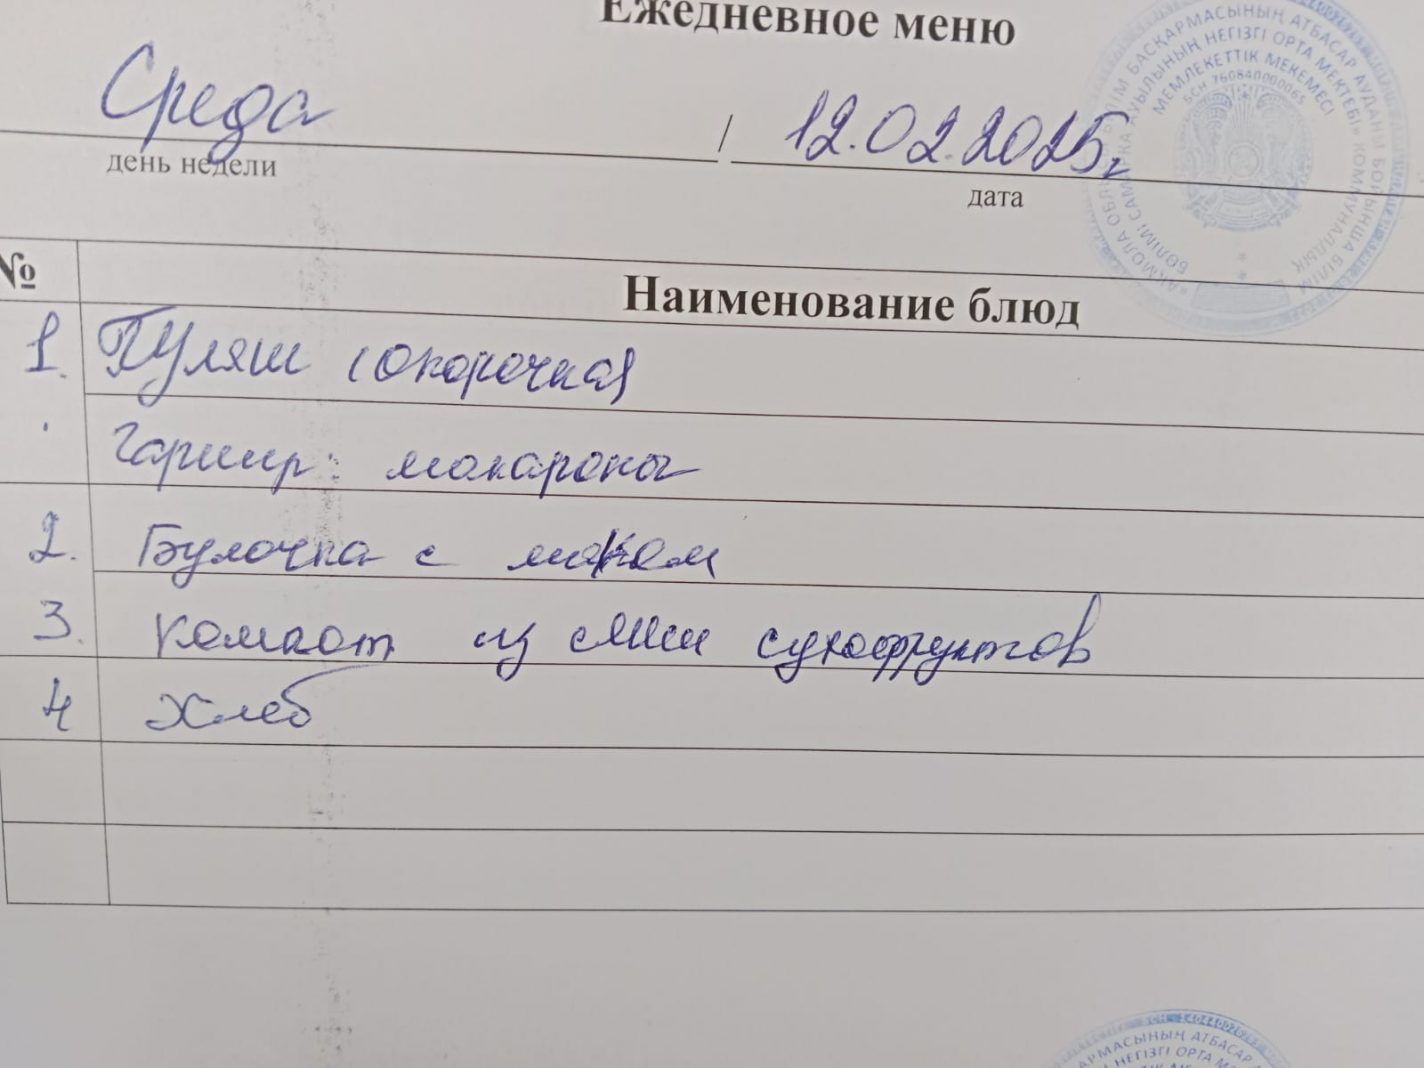 Ежедневное меню
Среда / 12.02.2025г
день недели дата
№ Наименование блюд
1. Гуляш (окорочка)
Гарнир: макароны
2. Булочка с маком
3. Компот из смеси сухофруктов
4 Хлеб
БАСҚАРМАСЫНЫҢ АТБАСАР АУДАНЫ БОЙЫНША БІЛІМ
АУЫЛЫНЫҢ НЕГІЗГІ ОРТА МЕКТЕБІ» КОММУНАЛДЫҚ
МЕМЛЕКЕТТІК МЕКЕМЕСІ
БСН 760840000065
АРМАСЫНЫҢ АТБАСАР
НЕГІЗГІ ОРТА